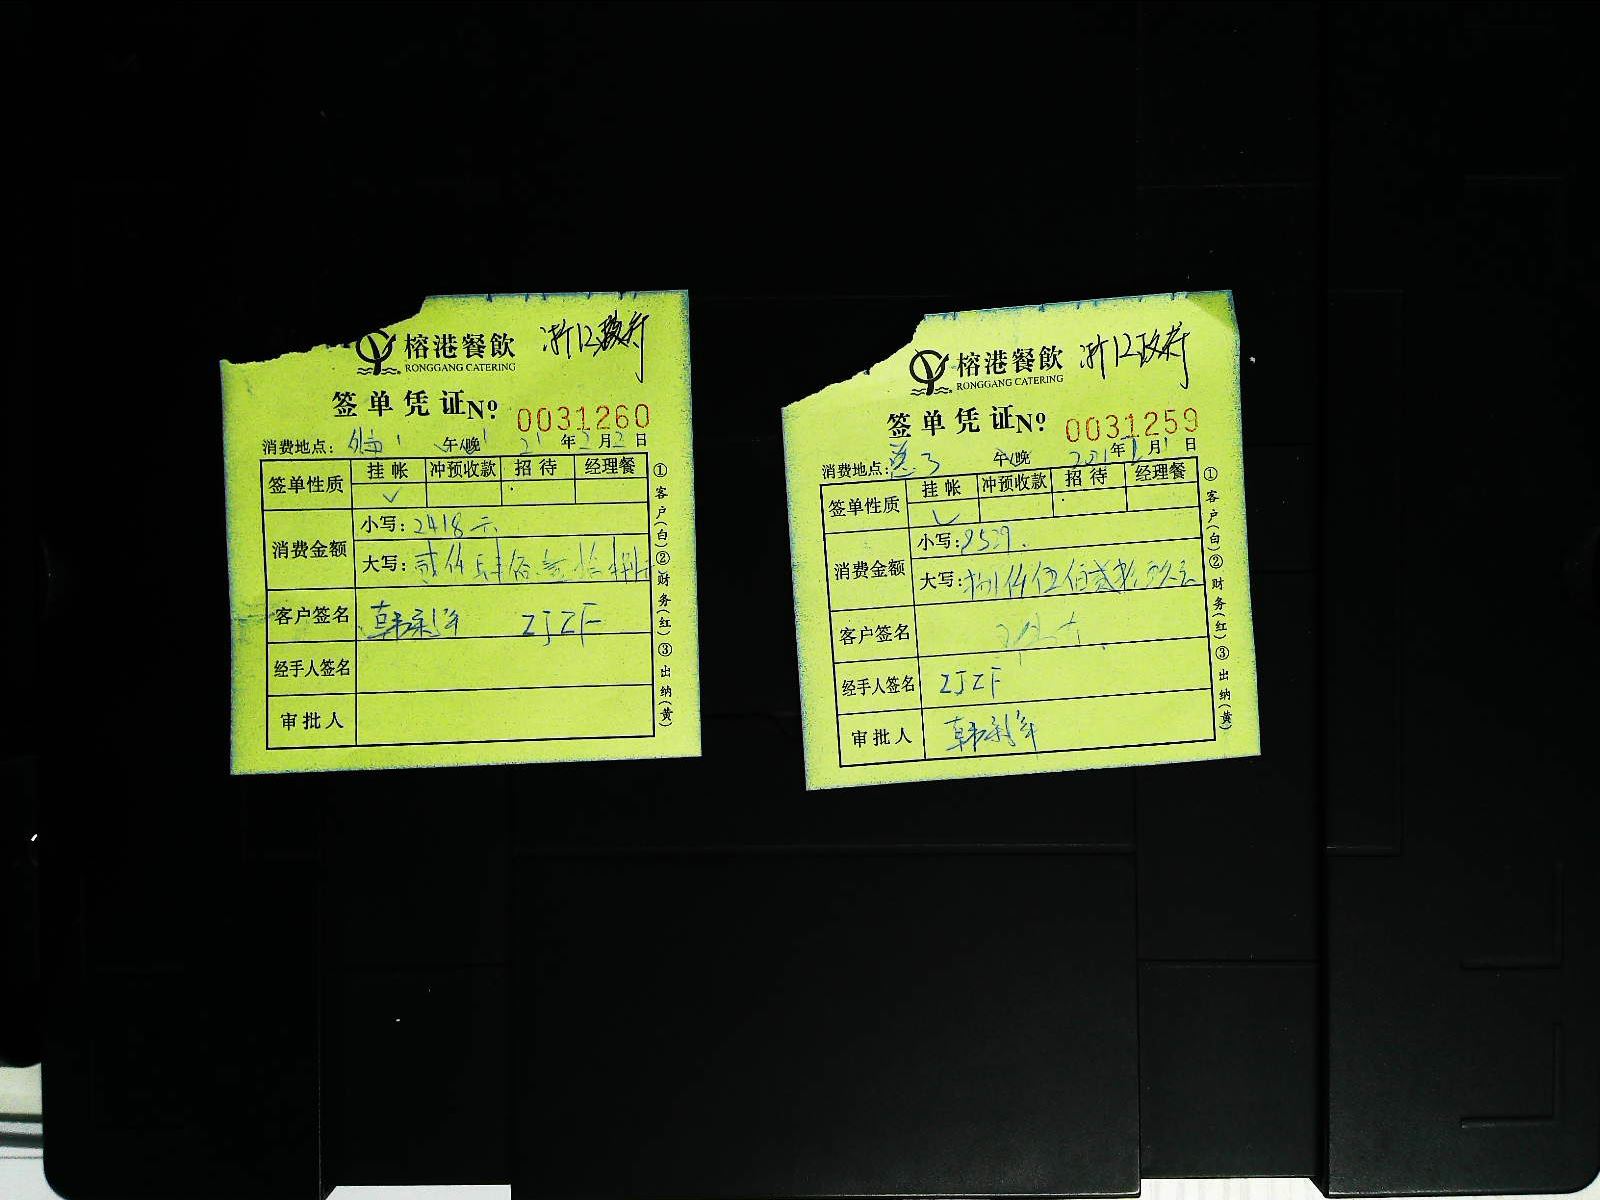 榕港餐飲 浙江政府
RONGGANG CATERING
签单凭证 Nº 0031260
消费地点: 午/晚 21年2月2日
签单性质 挂帐 冲预收款 招待 经理餐
✓
消费金额 小写: 2418元
大写: 贰仟肆佰壹拾捌元
客户签名 韩利军 ZJZF
经手人签名
审批人
①客户(白)②财务(红)③出纳(黄)
榕港餐飲 浙江政府
RONGGANG CATERING
签单凭证 Nº 0031259
消费地点: 午/晚 2021年2月1日
签单性质 挂帐 冲预收款 招待 经理餐
✓
消费金额 小写: 8529.
大写: 捌仟伍佰贰拾玖元
客户签名
经手人签名 ZJZF
审批人 韩利军
①客户(白)②财务(红)③出纳(黄)